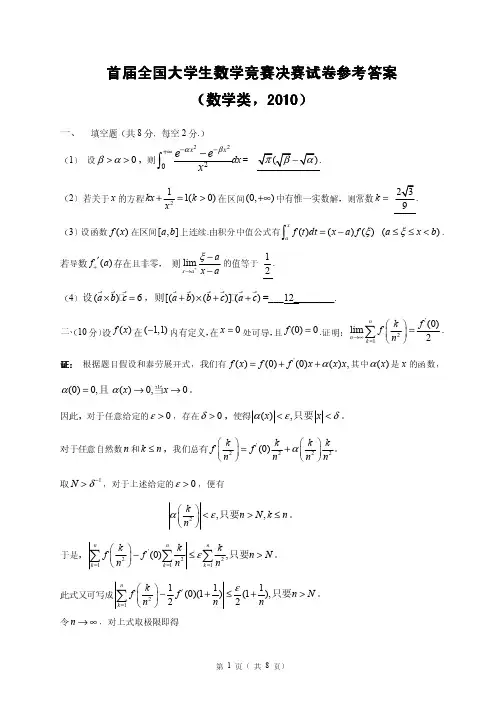 首届全国大学生数学竞赛决赛试卷参考答案
(数学类，2010)
一、 填空题(共8分. 每空2分.)
(1) 设 β > α > 0，则 ∫₀^{+∞} (e^{-αx²} − e^{-βx²})/x² dx = √π(√β−√α).
(2) 若关于 x 的方程 kx + 1/x² = 1(k > 0) 在区间 (0, +∞) 中有惟一实数解，则常数 k = 2√3/9.
(3) 设函数 f(x) 在区间 [a, b] 上连续.由积分中值公式有 ∫ₐˣ f(t)dt = (x − a)f(ξ) (a ≤ ξ ≤ x < b).
若导数 f₊′(a) 存在且非零， 则 lim_{x→a⁺} (ξ − a)/(x − a) 的值等于 1/2.
(4) 设 (a⃗ × b⃗)·c⃗ = 6，则[(a⃗ + b⃗) × (b⃗ + c⃗)]·(a⃗ + c⃗) = 12 .
二、(10分) 设 f(x) 在 (−1,1) 内有定义，在 x = 0 处可导，且 f(0) = 0 .证明： lim_{n→∞} ∑_{k=1}^{n} f(k/n²) = f′(0)/2.
证： 根据题目假设和泰勒展开式，我们有 f(x) = f(0) + f′(0)x + α(x)x, 其中 α(x) 是 x 的函数，
α(0) = 0, 且 α(x) → 0, 当 x → 0。
因此，对于任意给定的 ε > 0，存在 δ > 0，使得 |α(x)| < ε, 只要 |x| < δ。
对于任意自然数 n 和 k ≤ n，我们总有 f(k/n²) = f′(0) k/n² + α(k/n²) k/n²。
取 N > δ⁻¹，对于上述给定的 ε > 0，便有
|α(k/n²)| < ε, 只要 n > N, k ≤ n。
于是，|∑_{k=1}^{n} f(k/n²) − f′(0) ∑_{k=1}^{n} k/n²| ≤ ε ∑_{k=1}^{n} k/n², 只要 n > N。
此式又可写成 |∑_{k=1}^{n} f(k/n²) − 1/2 f′(0)(1 + 1/n)| ≤ ε/2 (1 + 1/n), 只要 n > N。
令 n → ∞，对上式取极限即得
第 1 页（ 共 8 页）